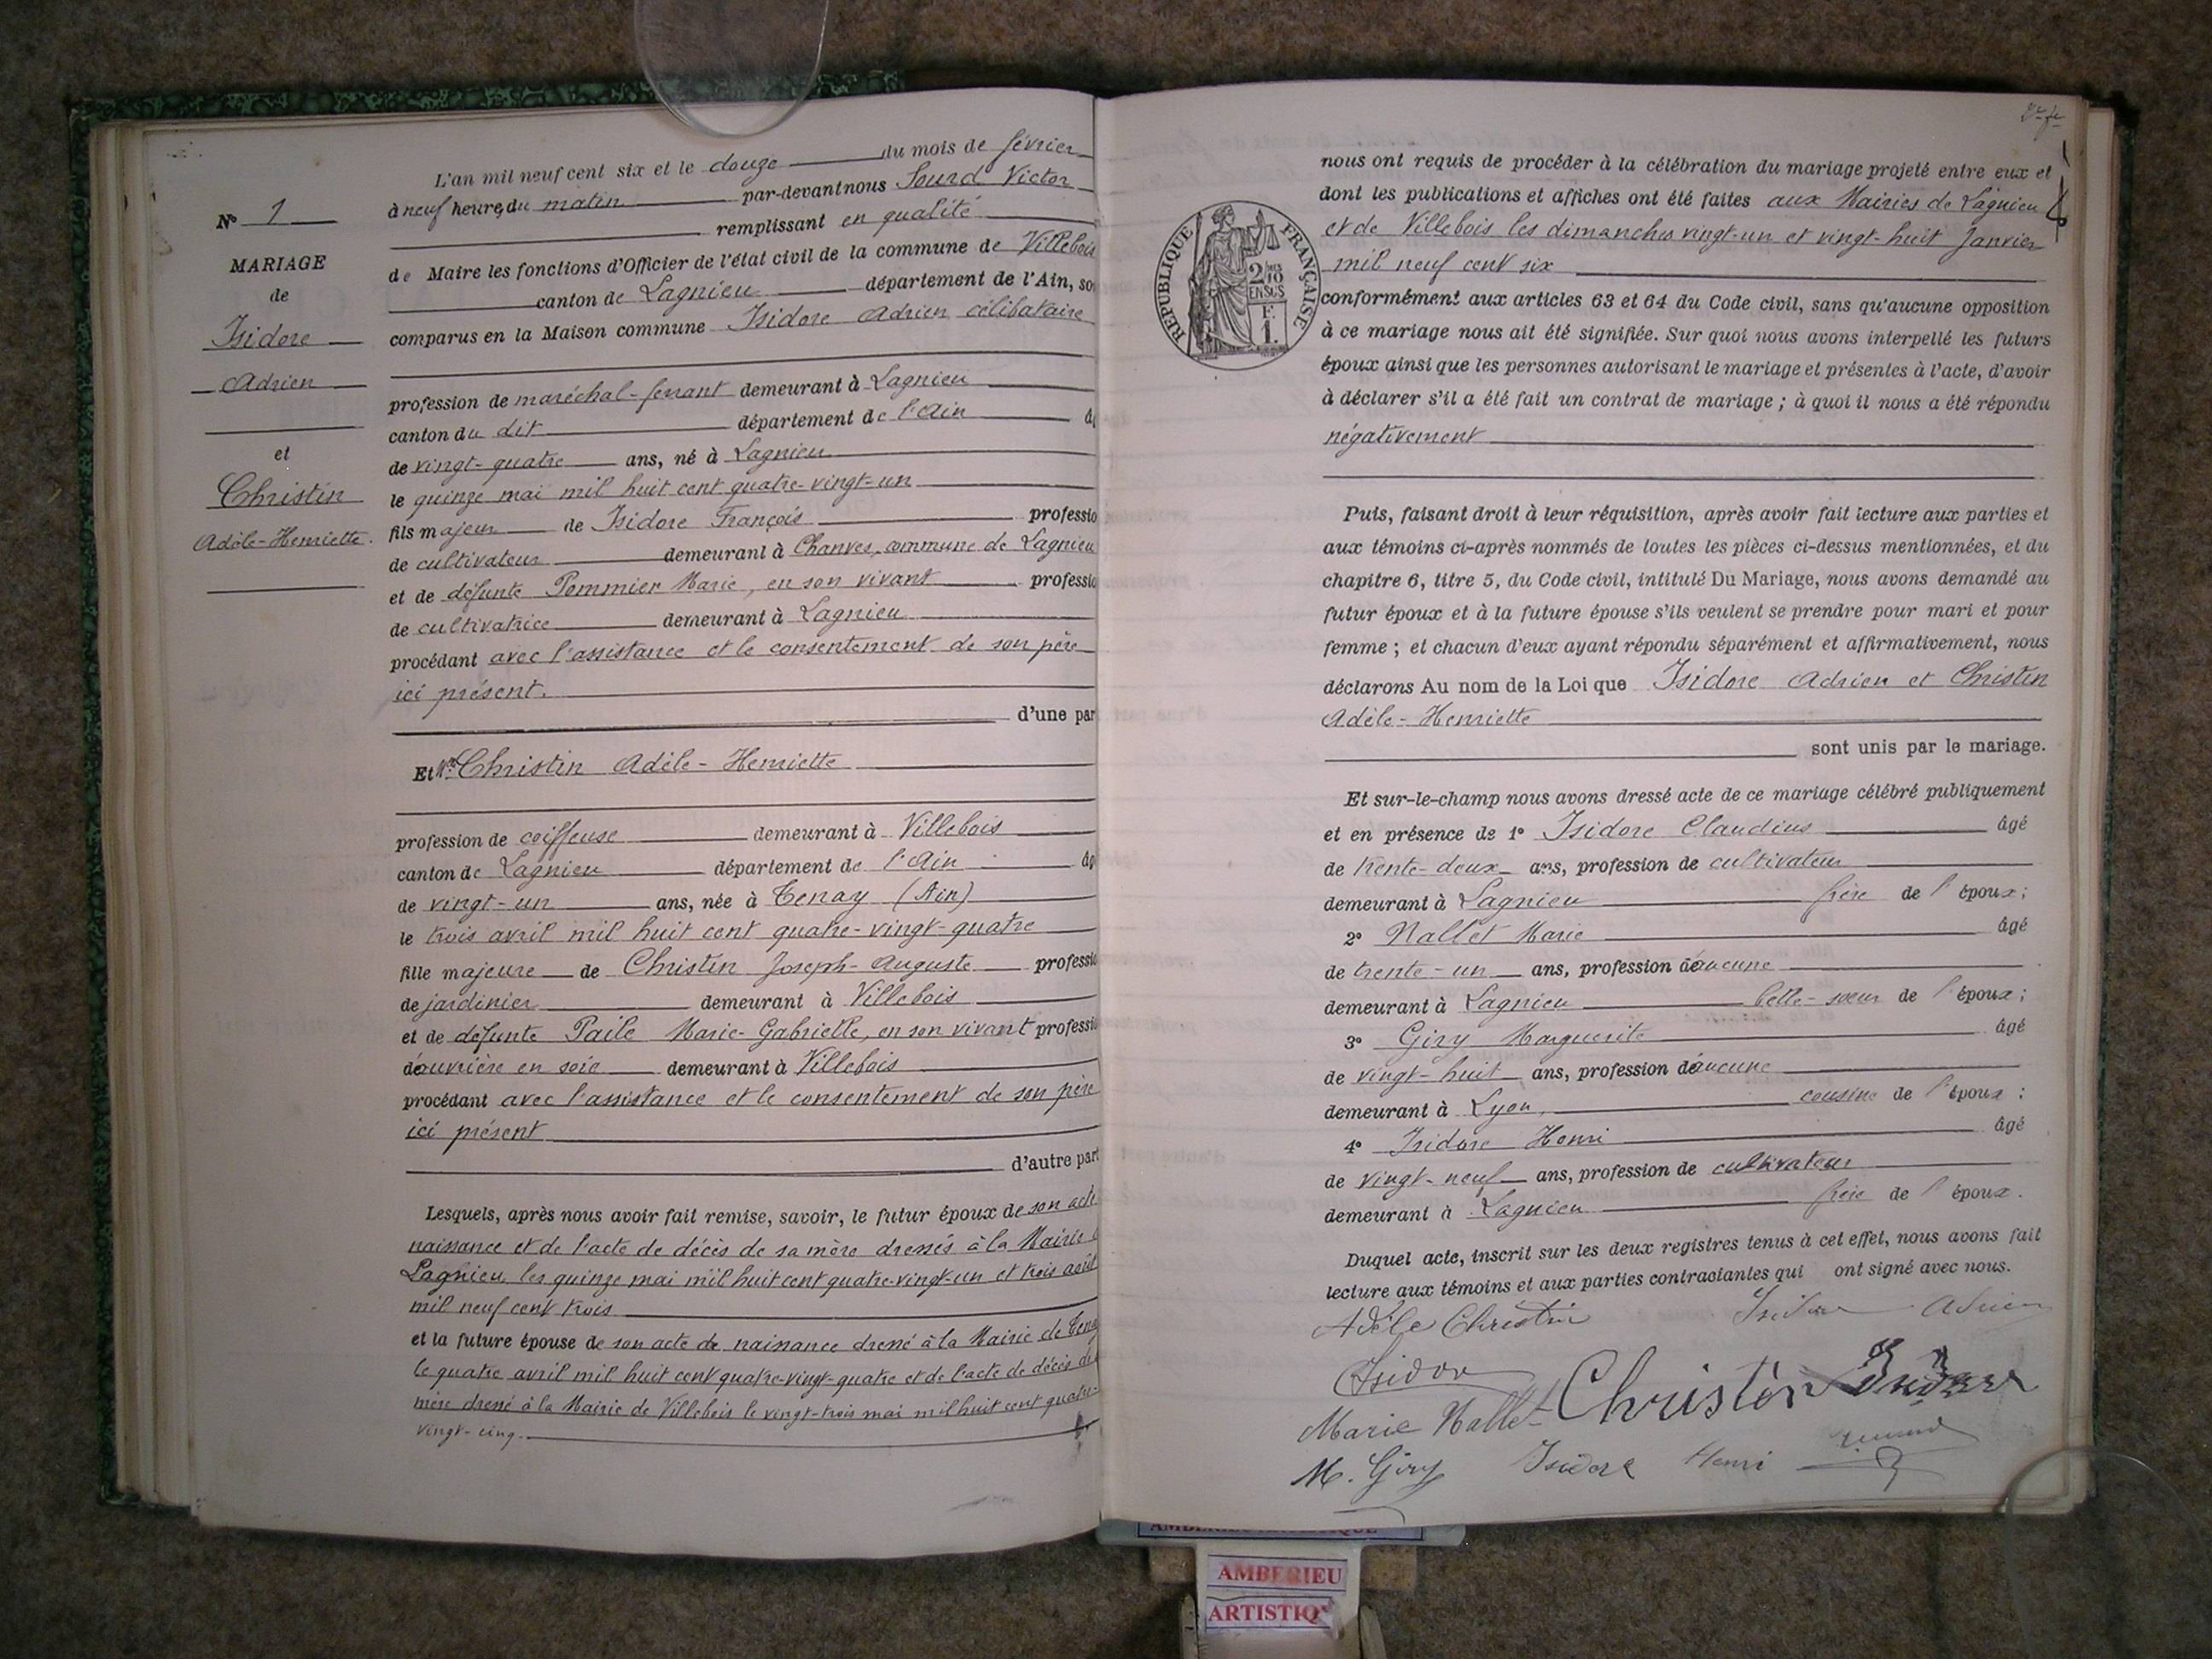 L'an mil neuf cent six et le douze du mois de février
à neuf heures du matin par-devant nous Sourd Victor
remplissant en qualité
de Maire les fonctions d'Officier de l'état civil de la commune de Villebois
canton de Lagnieu département de l'Ain, so
comparus en la Maison commune Isidore Adrien célibataire
profession de maréchal-ferrant demeurant à Lagnieu
canton du dit département de l'Ain âg
de vingt-quatre ans, né à Lagnieu
le quinze mai mil huit cent quatre-vingt-un
fils majeur de Isidore François professio
de cultivateur demeurant à Chanves, commune de Lagnieu
et de défunte Pommier Marie, en son vivant professio
de cultivatrice demeurant à Lagnieu
procédant avec l'assistance et le consentement de son père
ici présent.
d'une par
N° 1
MARIAGE
de
Isidore
Adrien
et
Christin
Adèle-Henriette.
Et Mlle Christin Adèle-Henriette
profession de coiffeuse demeurant à Villebois
canton de Lagnieu département de l'Ain âg
de vingt-un ans, née à Tenay (Ain)
le trois avril mil huit cent quatre-vingt-quatre
fille majeure de Christin Joseph-Auguste professio
de jardinier demeurant à Villebois
et de défunte Paile Marie-Gabrielle, en son vivant professio
d'ouvrière en soie demeurant à Villebois
procédant avec l'assistance et le consentement de son père
ici présent
d'autre part
Lesquels, après nous avoir fait remise, savoir, le futur époux de son acte
naissance et de l'acte de décès de sa mère dressés à la Mairie
Lagnieu les quinze mai mil huit cent quatre-vingt-un et trois août
mil neuf cent trois
et la future épouse de son acte de naissance dressé à la Mairie de Tena
le quatre avril mil huit cent quatre-vingt-quatre et de l'acte de décès de
mère dressé à la Mairie de Villebois le vingt-trois mai mil huit cent quatre-
vingt-cinq.
RÉPUBLIQUE FRANÇAISE
2/10
EN SUS
F.
1.
nous ont requis de procéder à la célébration du mariage projeté entre eux et
dont les publications et affiches ont été faites aux Mairies de Lagnieu
et de Villebois les dimanches vingt-un et vingt-huit Janvier
mil neuf cent six
conformément aux articles 63 et 64 du Code civil, sans qu'aucune opposition
à ce mariage nous ait été signifiée. Sur quoi nous avons interpellé les futurs
époux ainsi que les personnes autorisant le mariage et présentes à l'acte, d'avoir
à déclarer s'il a été fait un contrat de mariage ; à quoi il nous a été répondu
négativement
Puis, faisant droit à leur réquisition, après avoir fait lecture aux parties et
aux témoins ci-après nommés de toutes les pièces ci-dessus mentionnées, et du
chapitre 6, titre 5, du Code civil, intitulé Du Mariage, nous avons demandé au
futur époux et à la future épouse s'ils veulent se prendre pour mari et pour
femme ; et chacun d'eux ayant répondu séparément et affirmativement, nous
déclarons Au nom de la Loi que Isidore Adrien et Christin
Adèle-Henriette
sont unis par le mariage.
Et sur-le-champ nous avons dressé acte de ce mariage célébré publiquement
et en présence de 1° Isidore Claudius âgé
de trente-deux ans, profession de cultivateur
demeurant à Lagnieu frère de l'époux;
2° Nallet Marie âgé
de trente-un ans, profession d'aucune
demeurant à Lagnieu belle-sœur de l'époux;
3° Giry Marguerite âgé
de vingt-huit ans, profession d'aucune
demeurant à Lyon, cousine de l'époux;
4° Isidore Henri âgé
de vingt-neuf ans, profession de cultivateur
demeurant à Lagnieu frère de l'époux.
Duquel acte, inscrit sur les deux registres tenus à cet effet, nous avons fait
lecture aux témoins et aux parties contractantes qui ont signé avec nous.
Adèle Christin Isidore Adrien
Isidor Christin Isidore
Marie Nallet
M. Giry Isidore Henri
AMBERIEU
ARTISTIQ